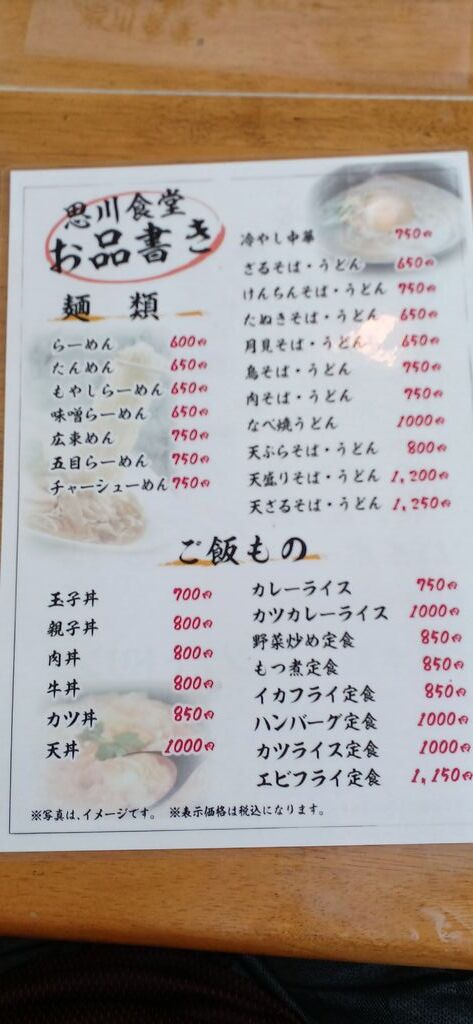 思川食堂
お品書き
麺類
らーめん 600円
たんめん 650円
もやしらーめん 650円
味噌らーめん 650円
広東めん 750円
五目らーめん 750円
チャーシューめん 750円
冷やし中華 750円
ざるそば・うどん 650円
けんちんそば・うどん 750円
たぬきそば・うどん 650円
月見そば・うどん 650円
鳥そば・うどん 750円
肉そば・うどん 750円
なべ焼うどん 1000円
天ぷらそば・うどん 800円
天盛りそば・うどん 1,200円
天ざるそば・うどん 1,250円
ご飯もの
玉子丼 700円
親子丼 800円
肉丼 800円
牛丼 800円
カツ丼 850円
天丼 1000円
カレーライス 750円
カツカレーライス 1000円
野菜炒め定食 850円
もつ煮定食 850円
イカフライ定食 850円
ハンバーグ定食 1000円
カツライス定食 1000円
エビフライ定食 1,150円
※写真は、イメージです。 ※表示価格は税込になります。